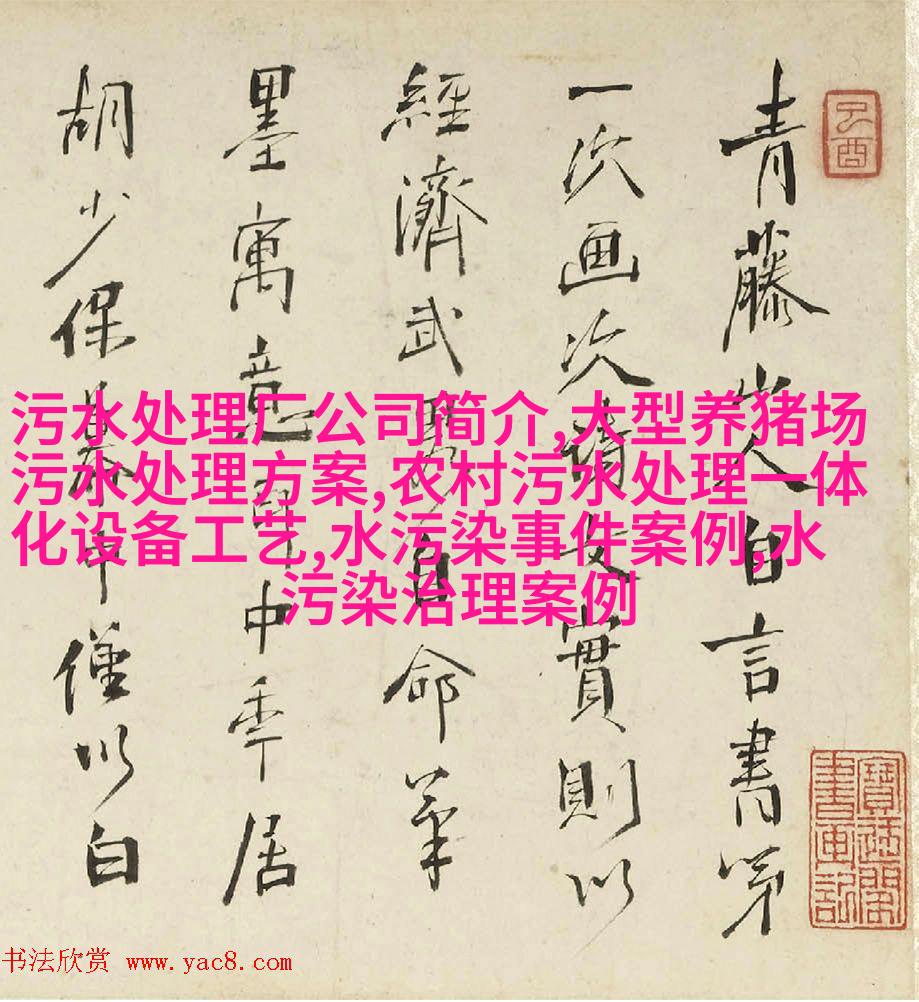 青藤山人自言書第
一次画次詩文實則以
經濟武自命筆
墨寓意耳中年居
胡少保幕中僅以白
寶迂閣
書畫記
污水处理厂公司简介,大型养猪场
污水处理方案,农村污水处理一体
化设备工艺,水污染事件案例,水
污染治理案例
书法欣赏 www.yac8.com